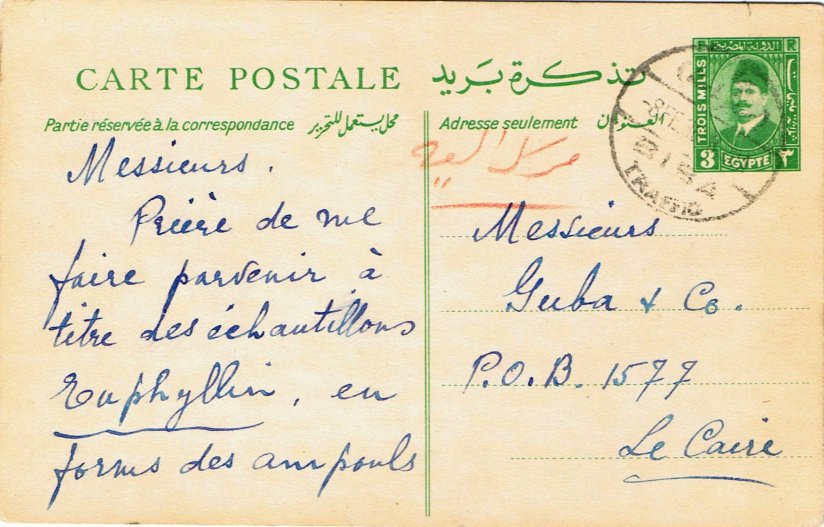 CARTE POSTALE تذكرة بريد
Partie réservée à la correspondance محل يستعمل للتحرير
Adresse seulement العنوان
Messieurs.
Prière de me
faire parvenir à
titre des échantillons
Euphyllin, en
forms des ampouls
مرسل اليه
Messieurs
Guba & Co.
P.O.B. 1577
Le Caire
الدولة المصرية
TROIS MILLS
3 EGYPTE ٣
TRAFFIC